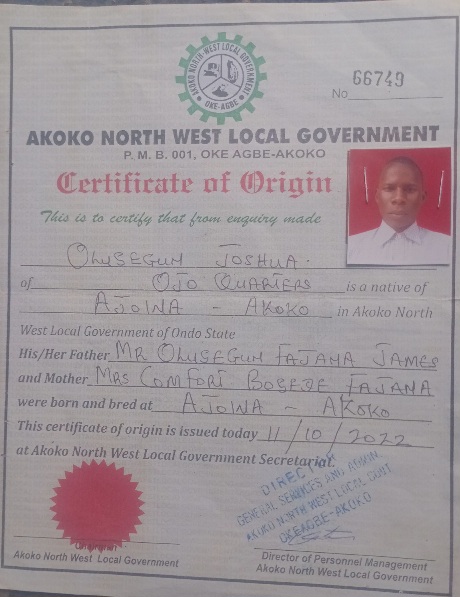 AKOKO NORTH-WEST LOCAL GOVERNMENT
OKE-AGBE
No 66749
AKOKO NORTH WEST LOCAL GOVERNMENT
P. M. B. 001, OKE AGBE-AKOKO
Certificate of Origin
This is to certify that from enquiry made
OLUSEGUN JOSHUA.
of OJO QUARTERS is a native of
AJOWA - AKOKO in Akoko North
West Local Government of Ondo State
His/Her Father MR OLUSEGUN FAJANA JAMES
and Mother MRS COMFORT BOSEDE FAJANA
were born and bred at AJOWA - AKOKO
This certificate of origin is issued today 11/10/2022
at Akoko North West Local Government Secretariat.
DIRECTOR
GENERAL SERVICES AND ADMIN.
AKOKO NORTH WEST LOCAL GOVT
OKEAGBE-AKOKO
Chairman
Akoko North West Local Government
Director of Personnel Management
Akoko North West Local Government